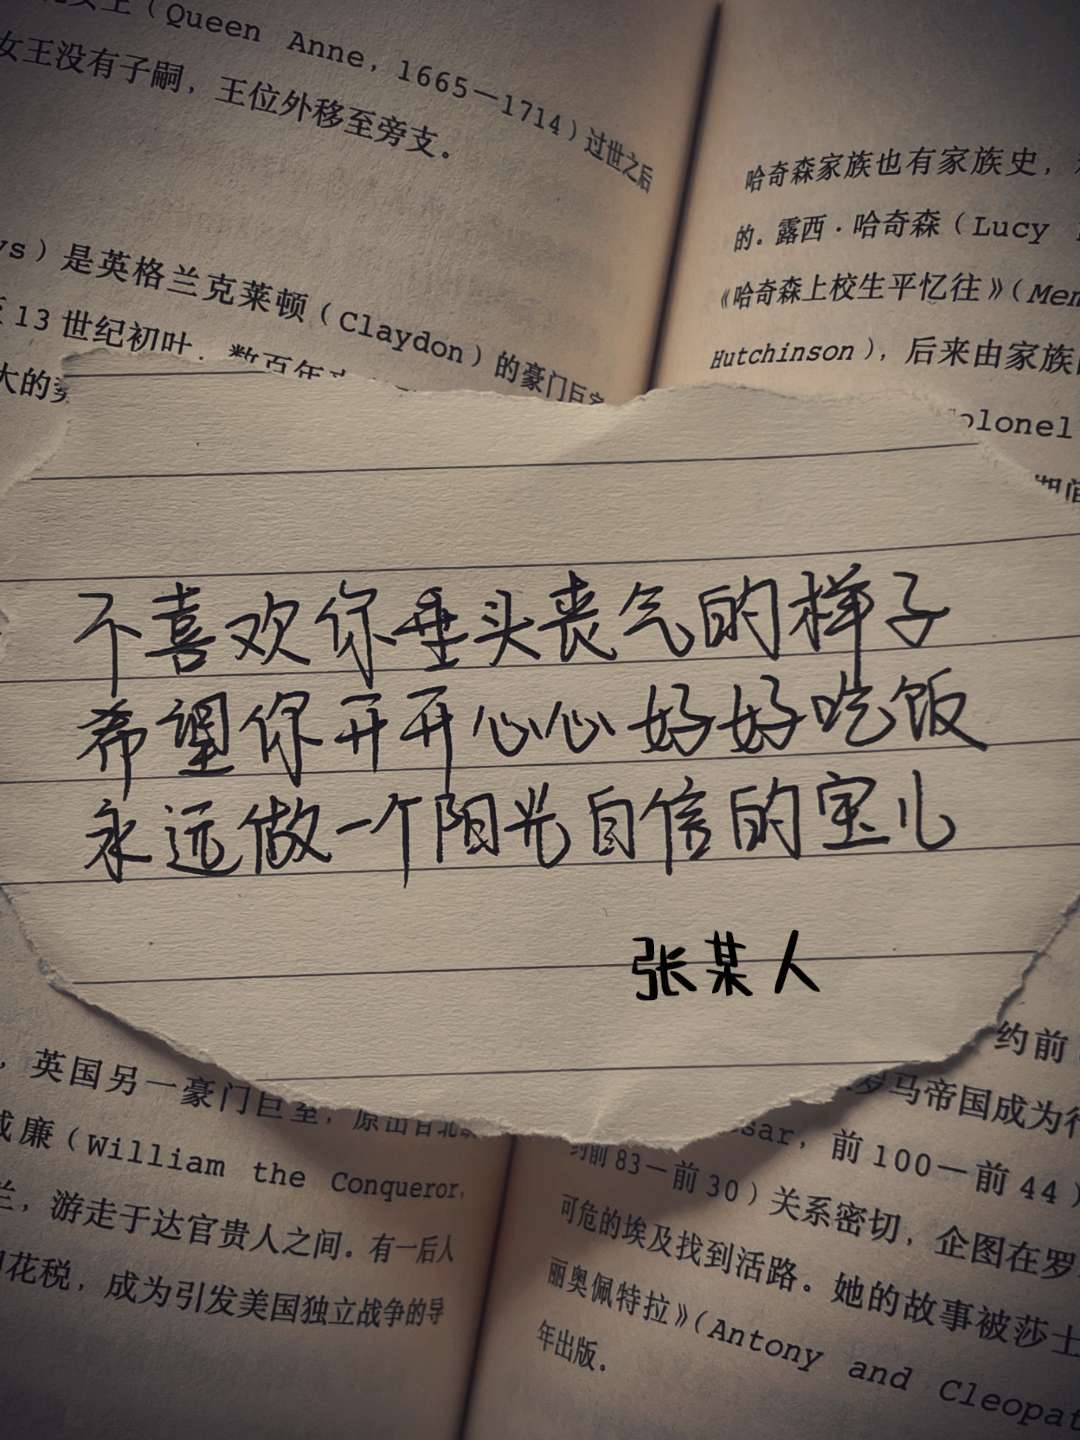 女王（Queen Anne，1665—1714）过世之后
女王没有子嗣，王位外移至旁支。
ys）是英格兰克莱顿（Claydon）的豪门巨室
13世纪初叶，数百年来
大的
哈奇森家族也有家族史，
的。露西·哈奇森（Lucy
《哈奇森上校生平忆往》（Mem
Hutchinson），后来由家族
Colonel
期间
不喜欢你垂头丧气的样子
希望你开开心心好好吃饭
永远做一个阳光自信的宝儿
张某人
，英国另一豪门巨室，原出自北
威廉（William the Conqueror，
兰，游走于达官贵人之间。有一后人
花税，成为引发美国独立战争的导
约前
罗马帝国成为行
sar，前100—前44）
约前83—前30）关系密切，企图在罗
可危的埃及找到活路。她的故事被莎士
丽奥佩特拉》（Antony and Cleopat
年出版。